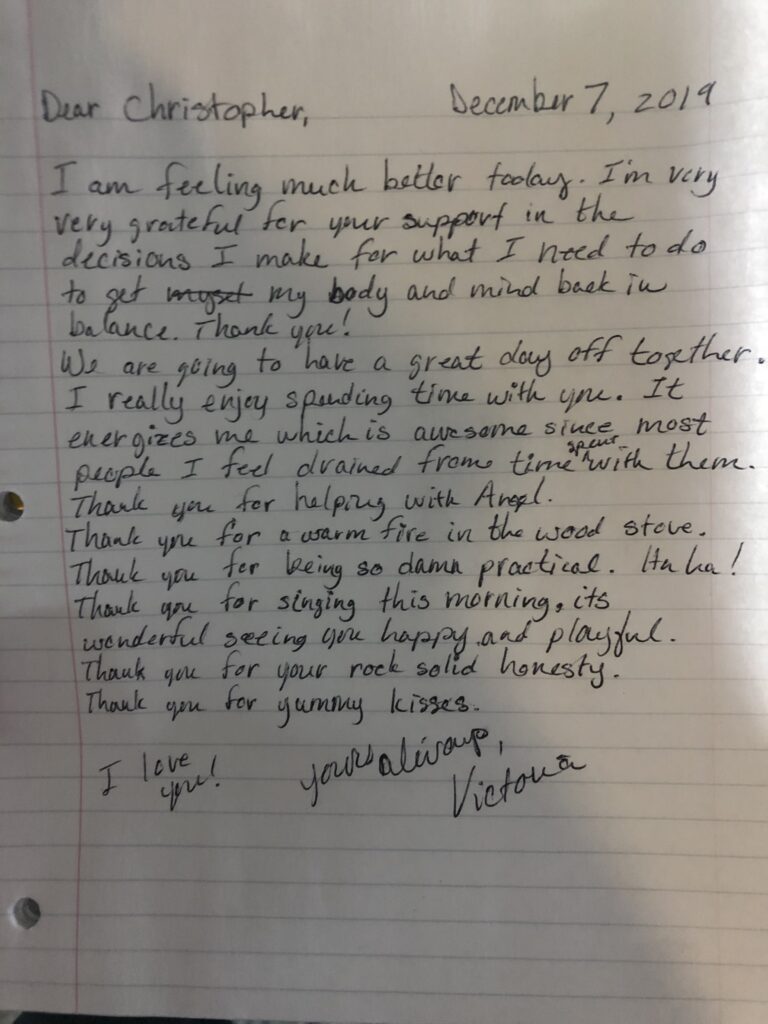 Dear Christopher, December 7, 2019
I am feeling much better today. I'm very
very grateful for your support in the
decisions I make for what I need to do
to get my body and mind back in
balance. Thank you!
We are going to have a great day off together.
I really enjoy spending time with you. It
energizes me which is awesome since most
people I feel drained from time spent with them.
Thank you for helping with Angel.
Thank you for a warm fire in the wood stove.
Thank you for being so damn practical. Ha ha!
Thank you for singing this morning, its
wonderful seeing you happy and playful.
Thank you for your rock solid honesty.
Thank you for yummy kisses.
I love
you!
yours always,
Victoria